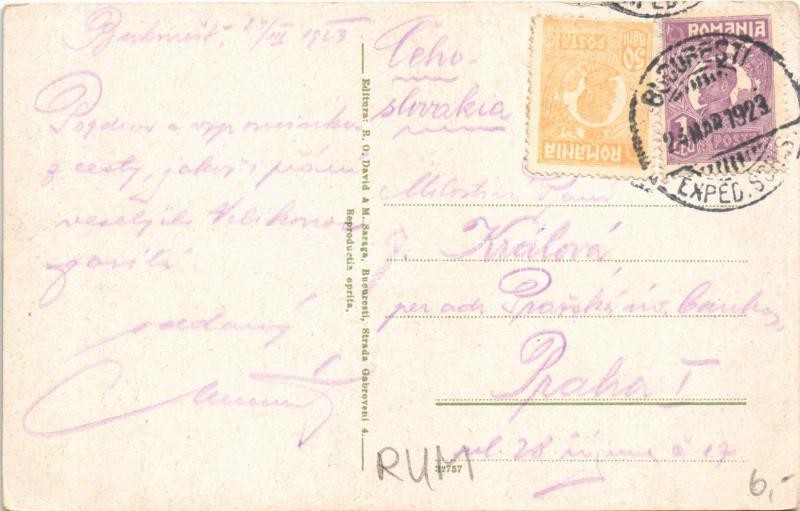 Bukurešť, 24/III 1923
Pozdrav a vzpomínku
z cesty, jakož i přání
veselých Velikonoc
zasílá
oddaný
Editura: R. O. David & M. Saraga, Bucuresti, Strada Gabroveni 4.
Reproductia oprita.
Čeho-
slovakia
50
BANI
POSTA
ROMANIA
ROMANIA
1
LEU
POSTA
BUCURESTI
24 MAR 1923
EXPED. SCRIS.
Milostivá Paní
Králová
per adr. Pražská úv. banka,
Praha I
ul. 28 října č 17
32757
RUM
6,-